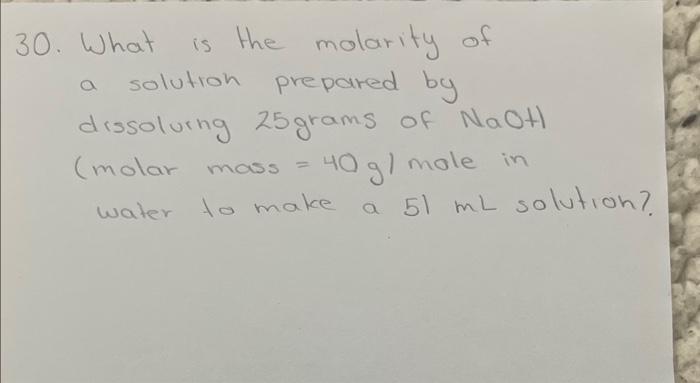 30. What is the molarity of
a solution prepared by
dissolving 25grams of NaOH
(molar mass = 40g/mole in
water to make a 51 mL solution?